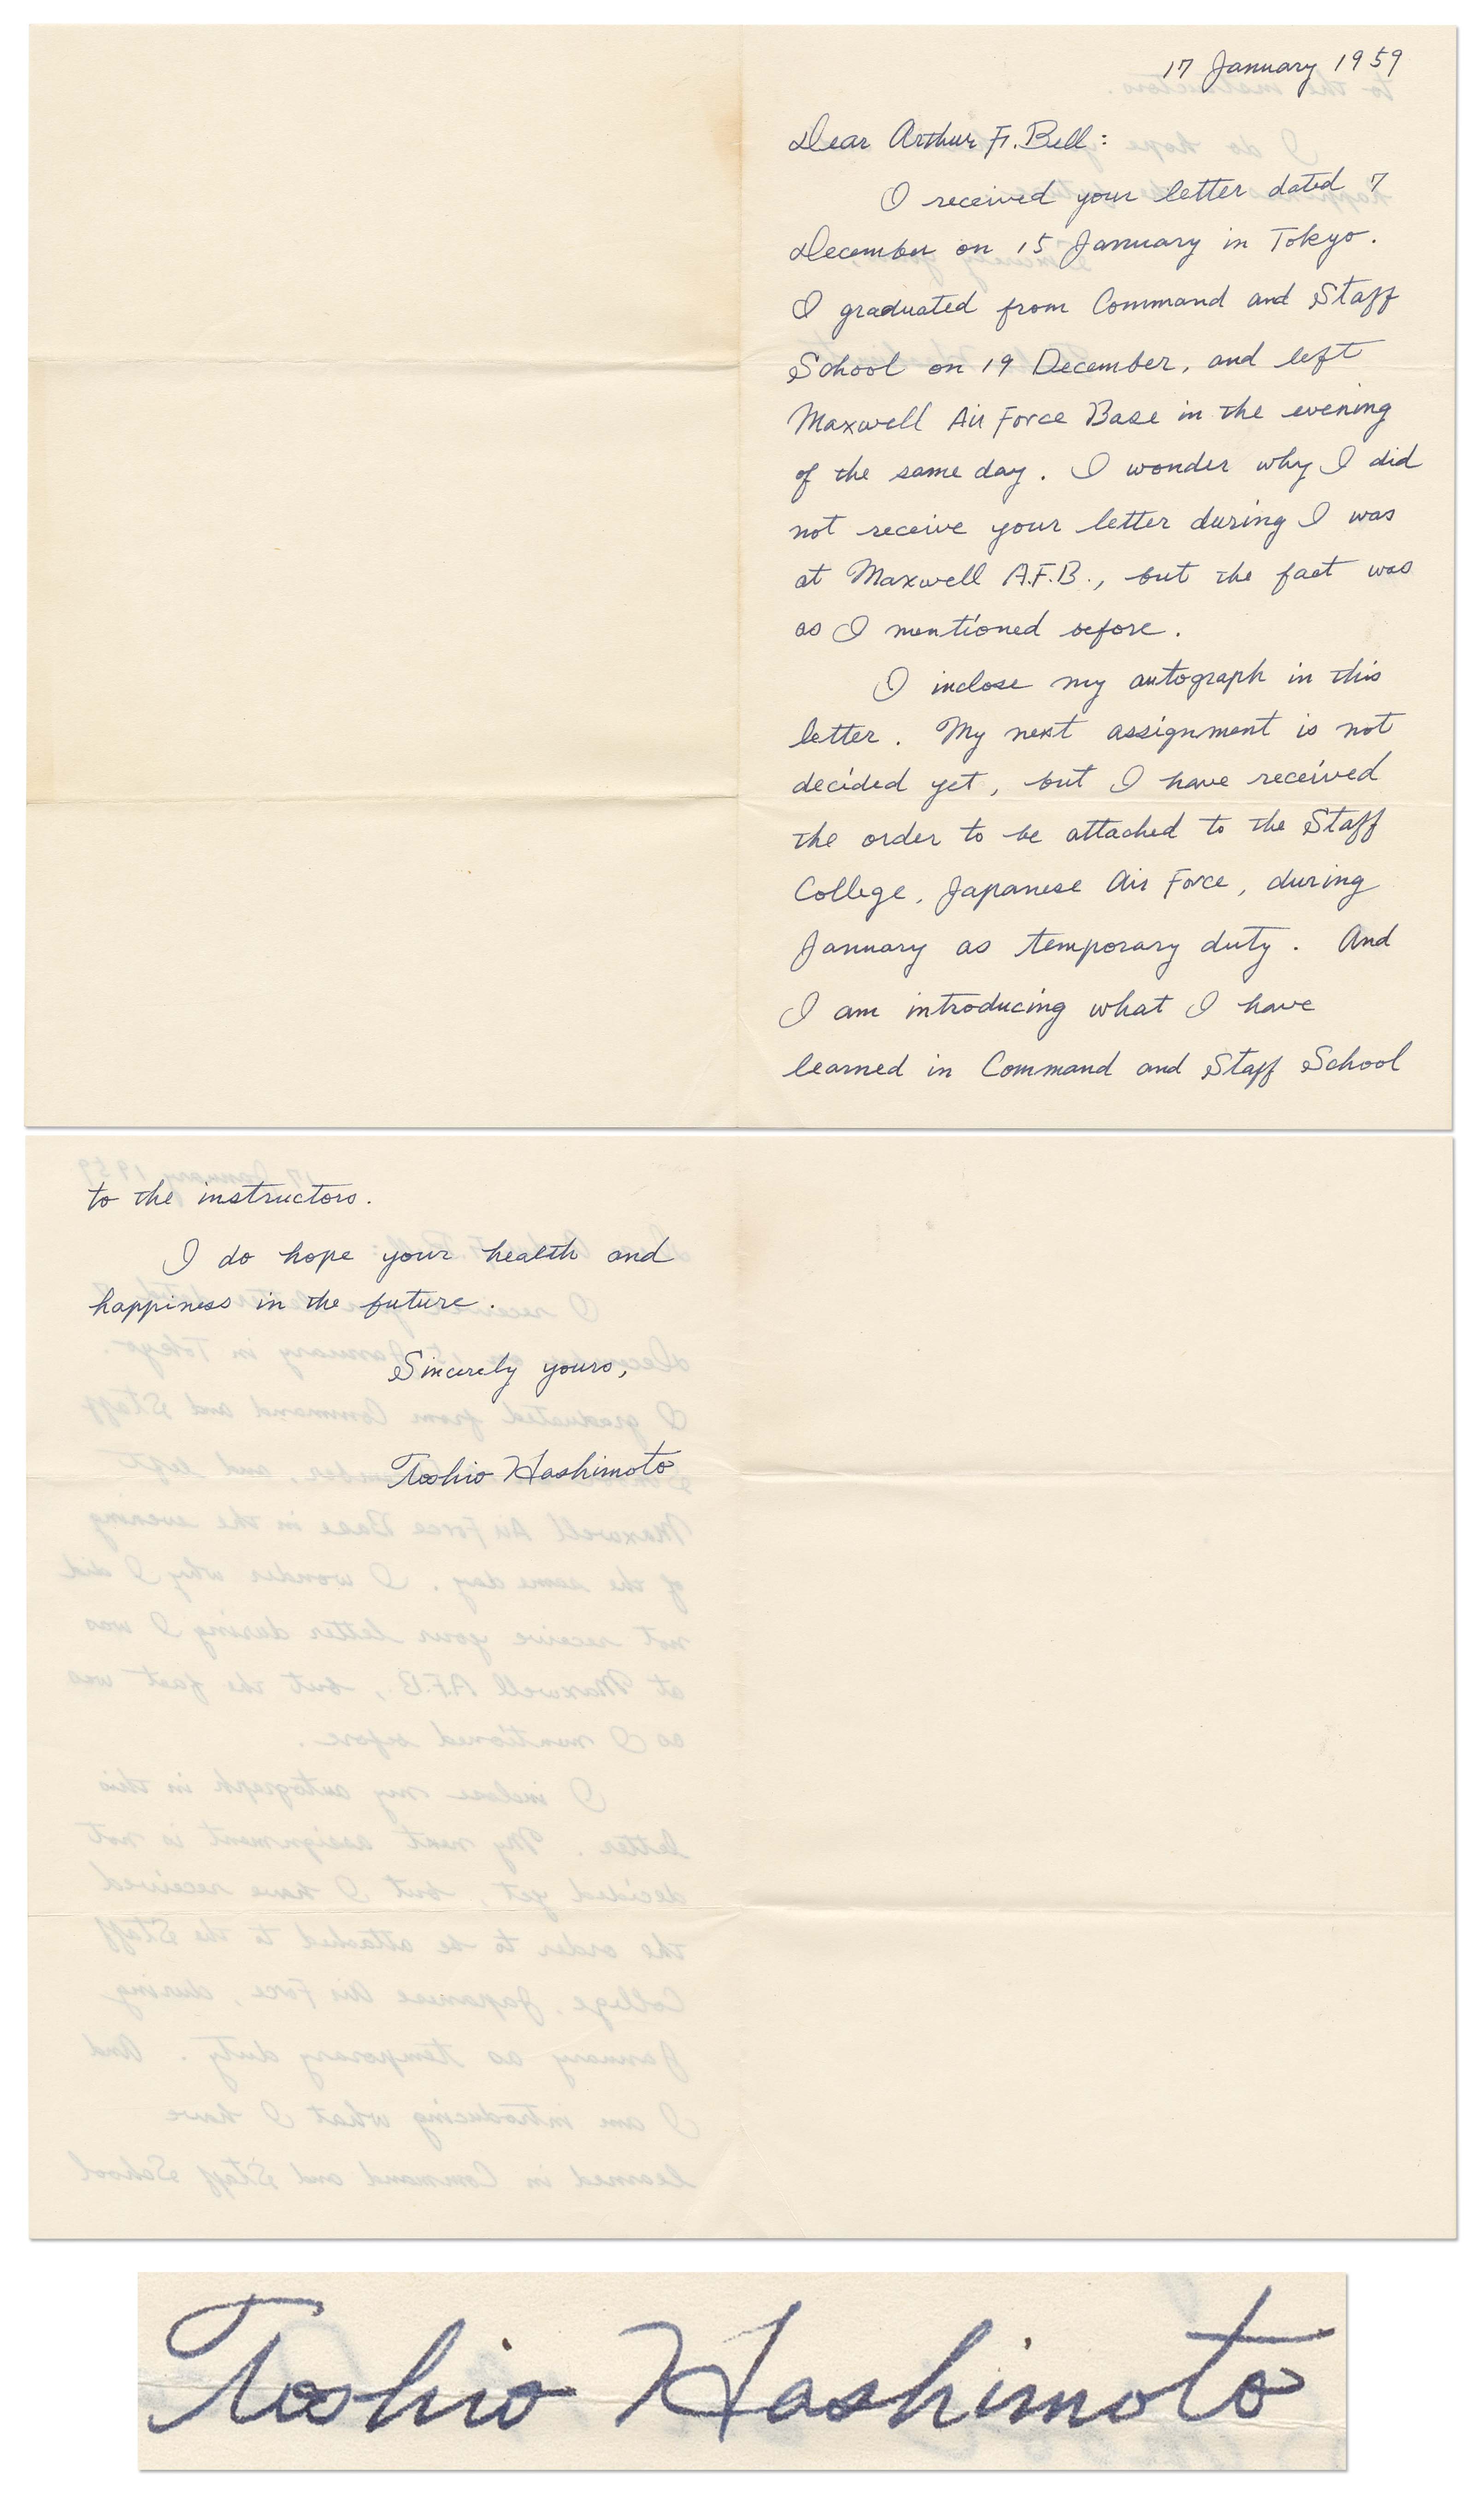 17 January 1959
Dear Arthur F. Bell:
I received your letter dated 7
December on 15 January in Tokyo.
I graduated from Command and Staff
School on 19 December, and left
Maxwell Air Force Base in the evening
of the same day. I wonder why I did
not receive your letter during I was
at Maxwell A.F.B., but the fact was
as I mentioned before.
I inclose my autograph in this
letter. My next assignment is not
decided yet, but I have received
the order to be attached to the Staff
College, Japanese Air Force, during
January as temporary duty. And
I am introducing what I have
learned in Command and Staff School
to the instructors.
I do hope your health and
happiness in the future.
Sincerely yours,
Toshio Hashimoto
Toshio Hashimoto